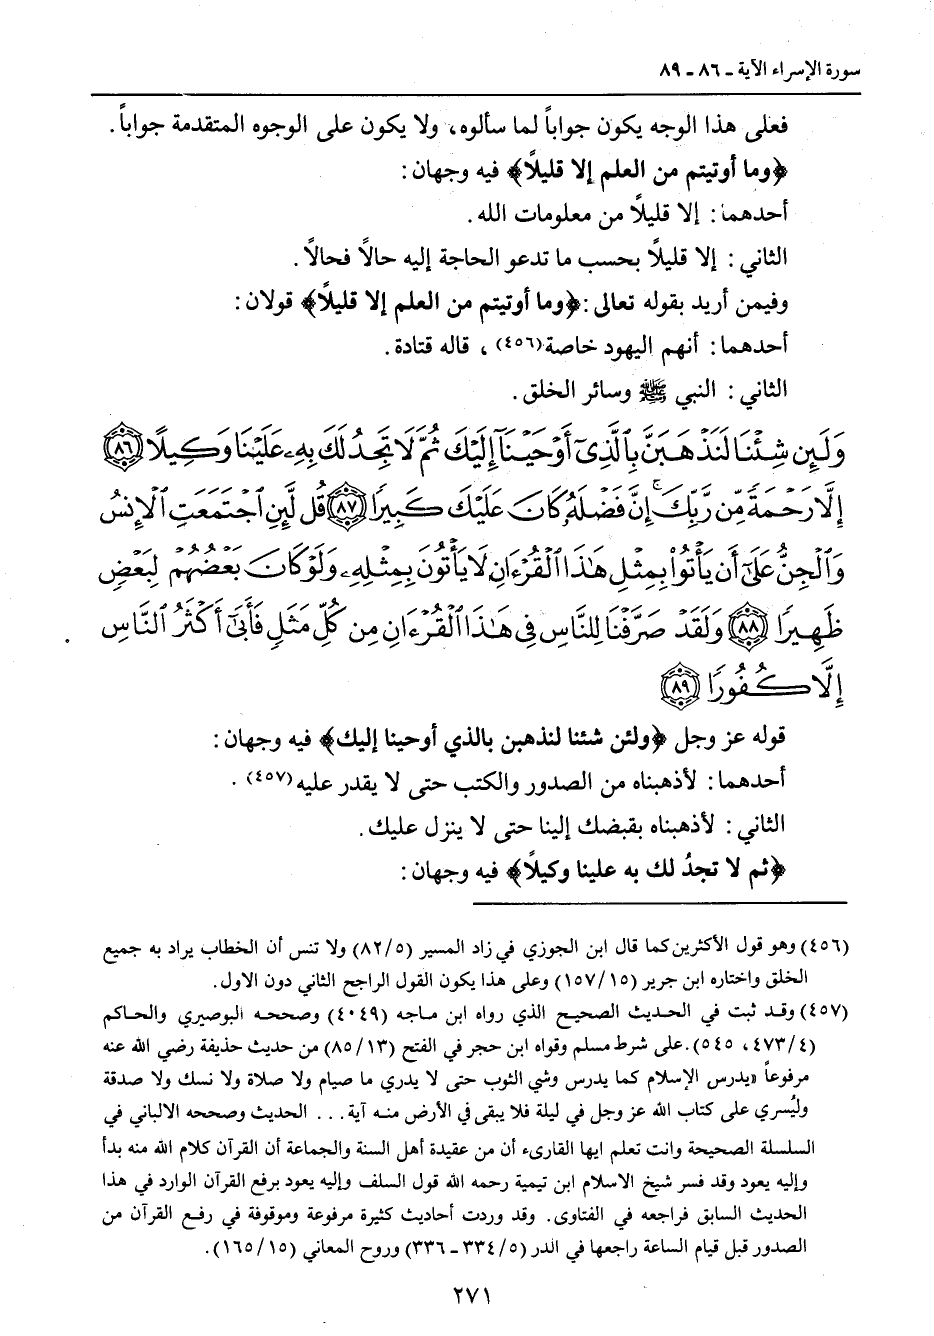 سورة الإسراء الآية - ٨٦ - ٨٩
فعلى هذا الوجه يكون جواباً لما سألوه، ولا يكون على الوجوه المتقدمة جواباً.
﴿وما أوتيتم من العلم إلا قليلاً﴾ فيه وجهان:
أحدهما: إلا قليلاً من معلومات الله.
الثاني: إلا قليلاً بحسب ما تدعو الحاجة إليه حالاً فحالاً.
وفيمن أريد بقوله تعالى: ﴿وما أوتيتم من العلم إلا قليلاً﴾ قولان:
أحدهما: أنهم اليهود خاصة(٤٥٦)، قاله قتادة.
الثاني: النبي ﷺ وسائر الخلق.
وَلَئِن شِئْنَا لَنَذْهَبَنَّ بِالَّذِىٓ أَوْحَيْنَآ إِلَيْكَ ثُمَّ لَا تَجِدُ لَكَ بِهِۦ عَلَيْنَا وَكِيلًا ﴿٨٦﴾
إِلَّا رَحْمَةً مِّن رَّبِّكَ ۚ إِنَّ فَضْلَهُۥ كَانَ عَلَيْكَ كَبِيرًا ﴿٨٧﴾ قُل لَّئِنِ ٱجْتَمَعَتِ ٱلْإِنسُ
وَٱلْجِنُّ عَلَىٰٓ أَن يَأْتُوا۟ بِمِثْلِ هَٰذَا ٱلْقُرْءَانِ لَا يَأْتُونَ بِمِثْلِهِۦ وَلَوْ كَانَ بَعْضُهُمْ لِبَعْضٍ
ظَهِيرًا ﴿٨٨﴾ وَلَقَدْ صَرَّفْنَا لِلنَّاسِ فِى هَٰذَا ٱلْقُرْءَانِ مِن كُلِّ مَثَلٍ فَأَبَىٰٓ أَكْثَرُ ٱلنَّاسِ
إِلَّا كُفُورًا ﴿٨٩﴾
قوله عز وجل ﴿ولئن شئنا لنذهبن بالذي أوحينا إليك﴾ فيه وجهان:
أحدهما: لأذهبناه من الصدور والكتب حتى لا يقدر عليه(٤٥٧).
الثاني: لأذهبناه بقبضك إلينا حتى لا ينزل عليك.
﴿ثم لا تجدُ لك به علينا وكيلاً﴾ فيه وجهان:
(٤٥٦) وهو قول الأكثرين كما قال ابن الجوزي في زاد المسير (٨٢/٥) ولا تنس أن الخطاب يراد به جميع
الخلق واختاره ابن جرير (١٥٧/١٥) وعلى هذا يكون القول الراجح الثاني دون الاول.
(٤٥٧) وقد ثبت في الحديث الصحيح الذي رواه ابن ماجه (٤٠٤٩) وصححه البوصيري والحاكم
(٤٧٣/٤، ٥٤٥). على شرط مسلم وقواه ابن حجر في الفتح (٨٥/١٣) من حديث حذيفة رضي الله عنه
مرفوعاً «يدرس الإسلام كما يدرس وشي الثوب حتى لا يدري ما صيام ولا صلاة ولا نسك ولا صدقة
وليُسري على كتاب الله عز وجل في ليلة فلا يبقى في الأرض منه آية... الحديث وصححه الالباني في
السلسلة الصحيحة وانت تعلم ايها القارىء أن من عقيدة أهل السنة والجماعة أن القرآن كلام الله منه بدأ
وإليه يعود وقد فسر شيخ الاسلام ابن تيمية رحمه الله قول السلف وإليه يعود برفع القرآن الوارد في هذا
الحديث السابق فراجعه في الفتاوى. وقد وردت أحاديث كثيرة مرفوعة وموقوفة في رفع القرآن من
الصدور قبل قيام الساعة راجعها في الدر (٥/ ٣٣٤ - ٣٣٦) وروح المعاني (١٦٥/١٥).
٢٧١